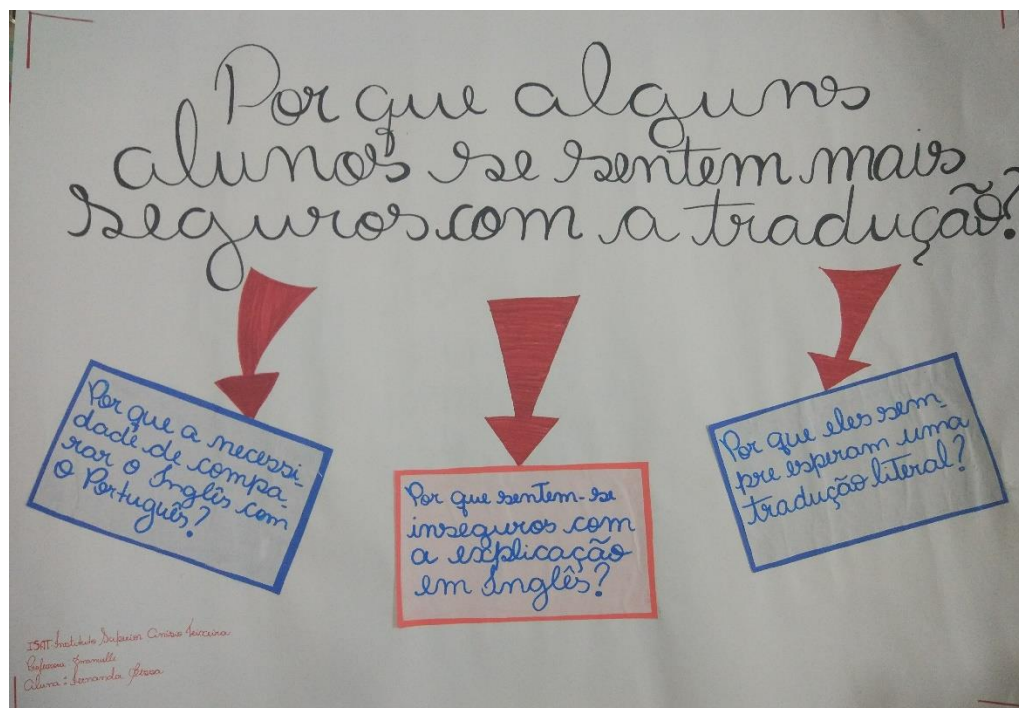 Por que alguns
alunos se sentem mais
seguros com a tradução?
Por que a necessi-
dade de compa-
rar o Inglês com
o Português?
Por que sentem-se
inseguros com
a explicação
em Inglês?
Por que eles sem-
pre esperam uma
tradução literal?
ISAT-Instituto Superior Anísio Teixeira
Professora
Aluna: Fernanda